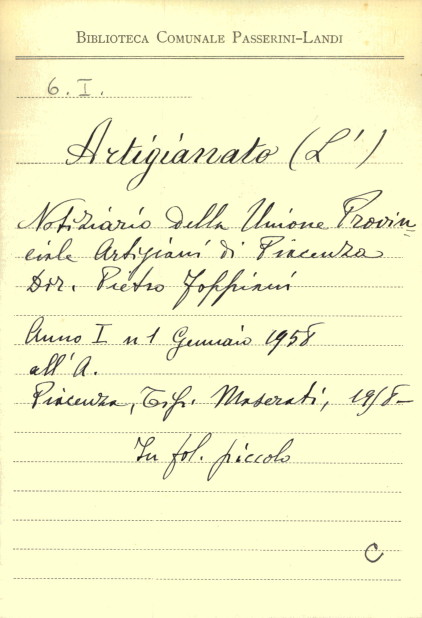 BIBLIOTECA COMUNALE PASSERINI-LANDI
6. I.
Artigianato (L')
Notiziario della Unione Provin=
ciale Artigiani di Piacenza
Dir. Pietro Foppiani
Anno I n 1 Gennaio 1958
all'A.
Piacenza, Tip. Maserati, 1958-
In fol. piccolo
C